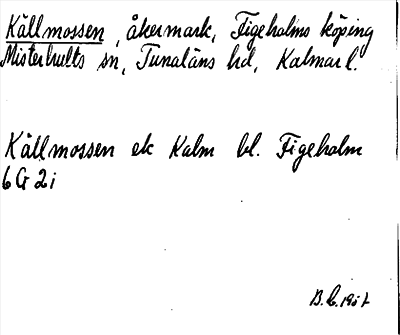 Källmossen, åkermark, Figeholms köping
Misterhults sn, Tunaläns hd, Kalmar l.
Källmossen ek Kalm bl. Figeholm
6G 2i